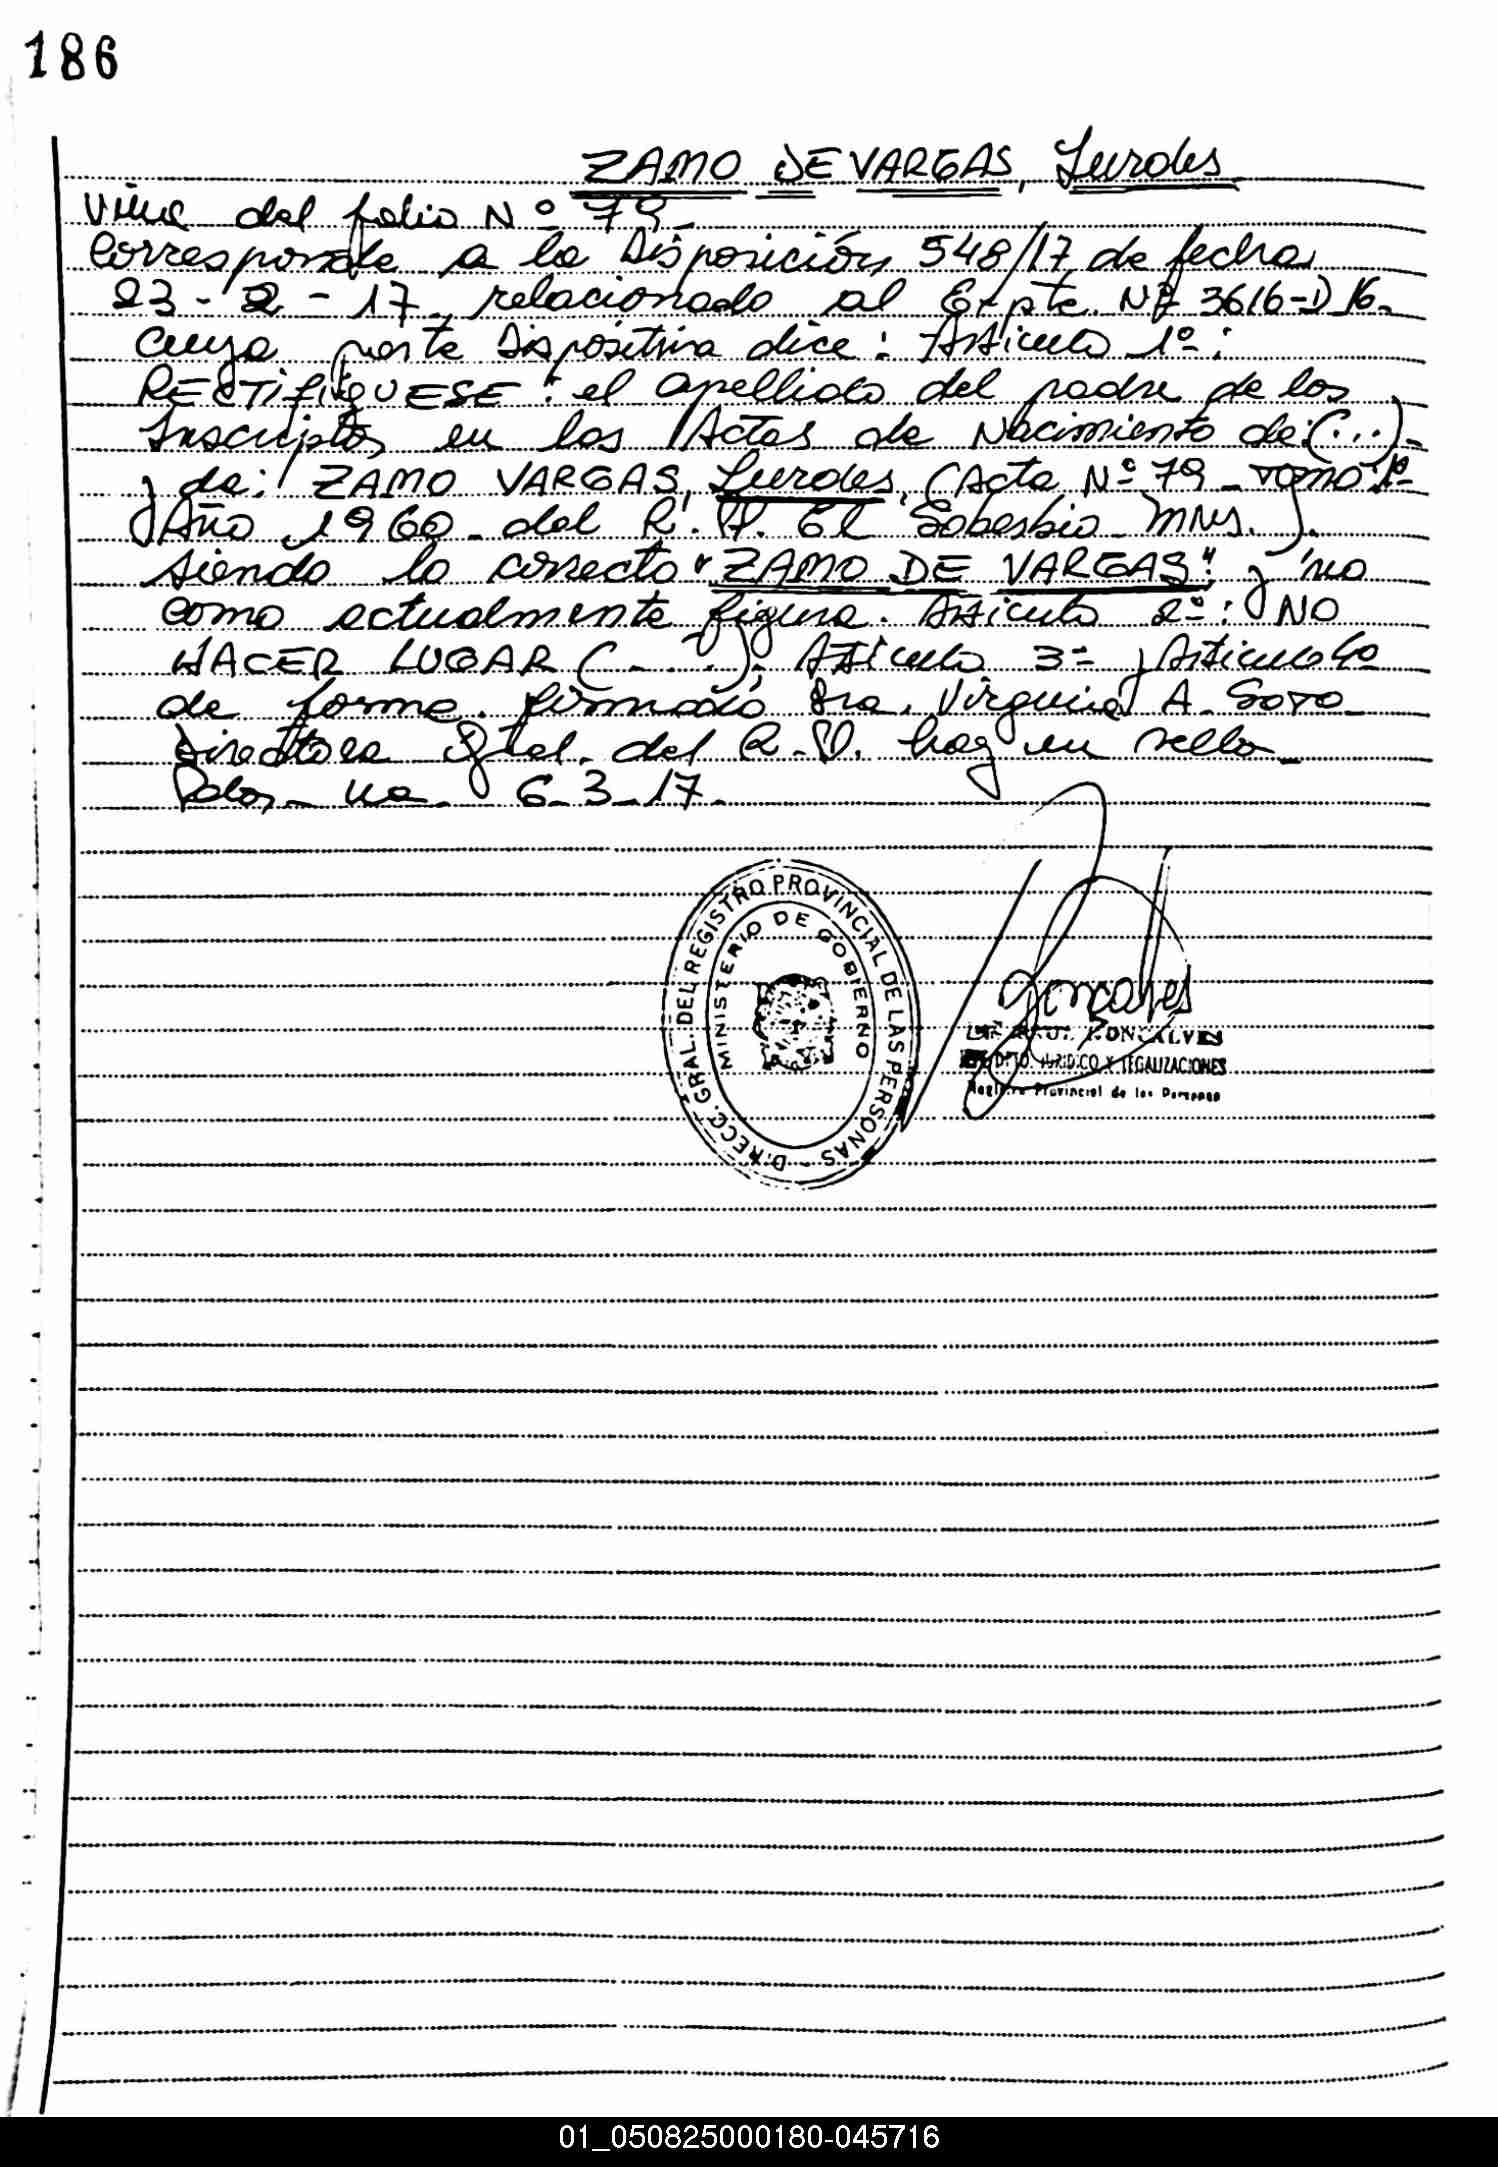 186
ZAMO DE VARGAS, Lurdes
Viene del folio Nº 79-
Corresponde a la Disposición 548/17 de fecha
23-2-17 relacionado al Expte. Nº 3616-D-16-
cuya parte Dispositiva dice: Artículo 1º:
RECTIFIQUESE: el apellido del padre de los
Inscriptos en las Actas de Nacimiento de: (...)-
y de: ZAMO VARGAS, Lurdes, (Acta Nº 79 - Tomo 1º-
Año 1960- del R.P. El Soberbio- Mnes.).
siendo lo correcto "ZAMO DE VARGAS" y no
como actualmente figura. Artículo 2º: NO
HACER LUGAR (....). Artículo 3º y Artículo 4º
de forma. firmado Dra. Virginia A. Soto-
Directora Gral. del R.P. hay un sello-
Pdas- 6-3-17.
DIRECC. GRAL. DEL REGISTRO PROVINCIAL DE LAS PERSONAS -
MINISTERIO DE GOBIERNO
Gonçalves
RAUL GONCALVES
DPTO. JURIDICO Y LEGALIZACIONES
Registro Provincial de las Personas
01_050825000180-045716